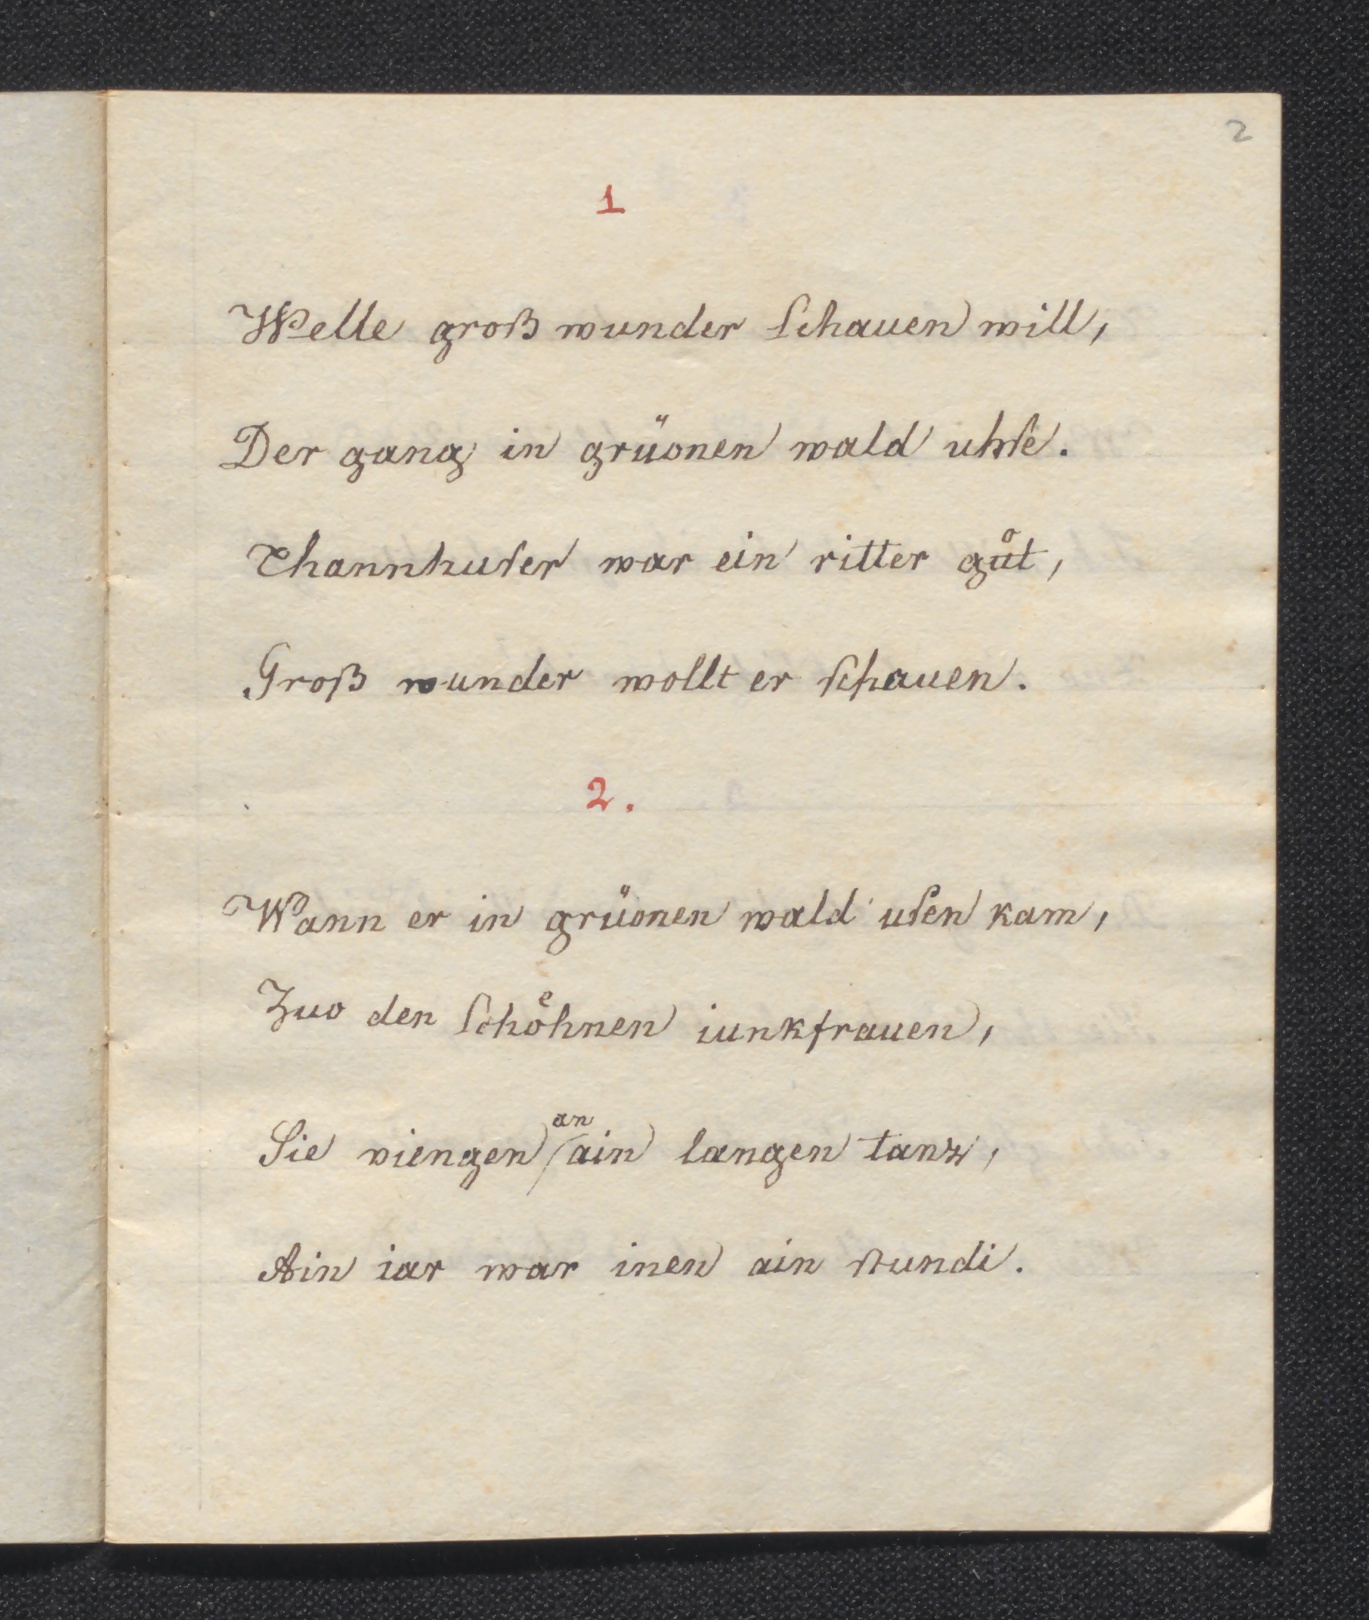 2
1
Welle groß wunder ſchauen will,
Der gang in grüonen wald uſſe.
Thannhuſer war ein ritter gůt,
Groß wunder wollt er ſchauen.
2.
Wann er in grüonen wald uſen kam,
Zuo den ſchoͤhnen iunkfrauen,
Sie viengen an ain langen tanz,
Ain iar war inen ain ſtundi.